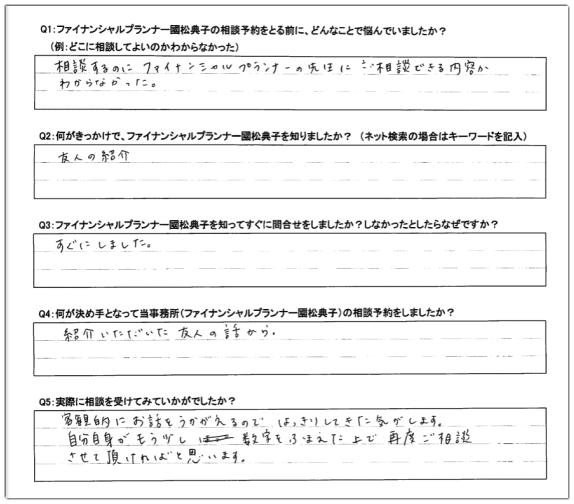 Q1:ファイナンシャルプランナー國松典子の相談予約をとる前に、どんなことで悩んでいましたか？
(例:どこに相談してよいのかわからなかった)
相談するのに ファイナンシャルプランナーの先生に ご相談できる内容か
わからなかった。
Q2:何がきっかけで、ファイナンシャルプランナー國松典子を知りましたか？ (ネット検索の場合はキーワードを記入)
友人の紹介
Q3:ファイナンシャルプランナー國松典子を知ってすぐに問合せをしましたか？しなかったとしたらなぜですか？
すぐにしました。
Q4:何が決め手となって当事務所(ファイナンシャルプランナー國松典子)の相談予約をしましたか？
紹介いただいた 友人の話から.
Q5:実際に相談を受けてみていかがでしたか？
客観的にお話をうかがえるので はっきりしてきた気がします。
自分自身がもう少し 数字をふまえた上で 再度ご相談
させて頂ければと思います。